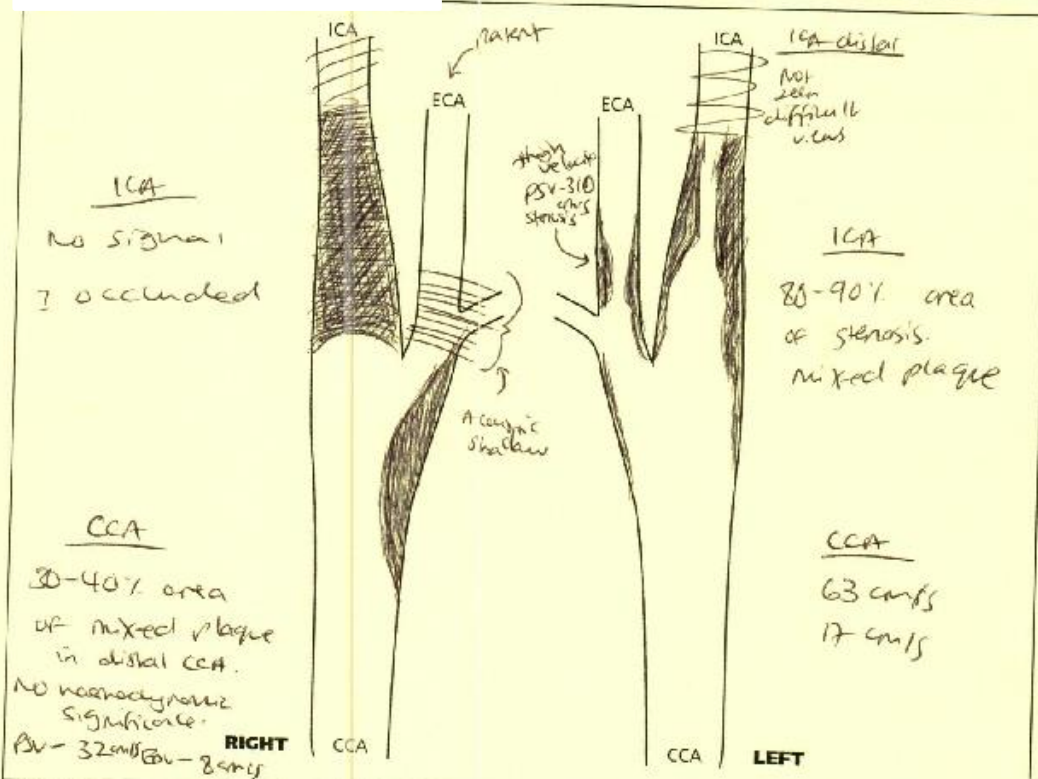 ICA
patent
ECA
ICA
No signal
? occluded
Acoustic
shadow
CCA
30-40% area
of mixed plaque
in distal CCA.
No haemodynamic
significance.
PSV - 32 cm/s EDV - 8 cm/s
RIGHT
CCA
ICA
ICA distal
Not
seen
difficult
views
ECA
high
velocity
PSV-310
cm/s
stenosis
ICA
80-90% area
of stenosis.
mixed plaque
CCA
63 cm/s
17 cm/s
CCA
LEFT